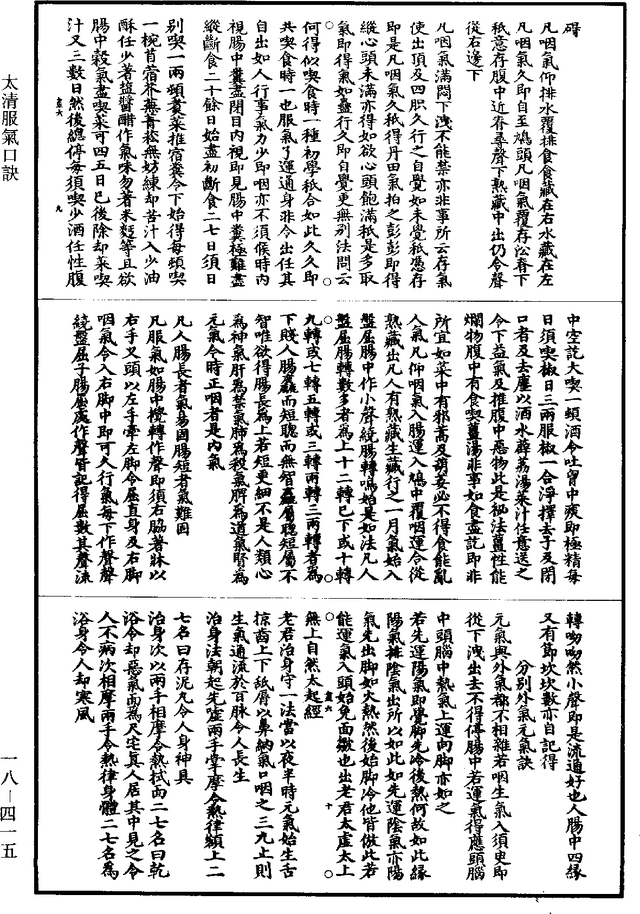 太清服氣口訣
一八—四一五
碍
凡咽氣仰排水覆排食食藏在右水藏在左
凡咽氣久即自至鳩頭凡咽氣覆存㳂脊下
秖意存腹中近脊尋聲下熟藏中出仍令聲
從右邊下
凡咽氣滿悶下洩不能禁亦非事所云存氣
使出頂及四肢久行之自覺如未覺秖憑存
即是凡咽氣久秖得丹田氣拍之彭彭即得
縱心頭未滿亦得如欲心頭飽滿秖是多取
氣即得氣如蠱行久即自覺更無別法問云
何得似喫食時一種初學秖合如此久久即
共喫食時一也服氣了運通身非今出任其
自出如人行事氣力少即咽亦不須候時內
視腸中糞盡閉目內視即見腸中糞極難盡
縱斷食二十餘日始盡初斷食二七日須日
別喫一兩頓煑菜推宿糞令下始得每頓喫
一椀苜蓿芥蕪菁菘無妨練却苦汁入少油
酥任少著䜴醬醋作氣味勿著米麪等且欲
腸中穀氣盡喫菜可四五日已後除却菜喫
汁又三數日然後總停每須喫少酒任性腹
盡六　九
中空訖大喫一頓酒令吐胷中痰即極精每
日須喫椒日三兩服椒一合淨擇去子及閉
口者及去塵以酒水薜荔湯菜汁任意送之
令下益氣及推腹中惡物此是秘法薑性能
爛物腹中有食喫薑湯非事如食盡訖即非
所宜如菜中有邪蒿及胡荽必不得食能亂
人氣凡仰咽氣入腸運入鳩中覆咽運合從
熟藏出凡人有熟藏生藏行之一月氣始入
盤屈腸中作小聲繞腸轉鳴始是如法凡人
盤屈腸轉數多者為上十二轉已下或十轉
九轉或七轉五轉或三轉兩轉三兩轉者為
下賤人腸麤而短聰而無智麤屬聰短屬不
智唯欲得腸長為上若短更細不是人類心
為神氣肝為禁氣肺為殺氣脾為道氣腎為
元氣今時正咽者是內氣
凡人腸長者氣易固腸短者氣難固
凡服氣如腸中攪轉作聲即須右脇著牀以
右手叉頭以左手牽左脚令屈直身及右脚
咽氣令入右脚中即可人行氣每下作聲聲
繞盤屈子腸屈處作聲皆記得屈數其聲流
轉㘝㘝然小聲即是流通好也人腸中四緣
又有節坎坎數亦自記得
分別外氣元氣訣
元氣與外氣都不相雜若咽生氣入須㬰即
從下洩出去不得停腸中若運氣得應頭腦
中頭腦中熱氣上運向脚亦如之
若先運陽氣即覺脚先冷後熱何故如此緣
陽氣排陰氣出所以如此如先運陰氣亦陽
氣先出脚如火熱然後始脚冷也皆倣此若
能運氣入頭始免面皺也出老君太虛太上
無上自然太起經
盡六　十
老君治身守一法當以夜半時元氣始生舌
掠齒上下舐脣以鼻納氣口咽之三九止則
生氣通流於百脉令人長生
治身法朝起先噓兩手掌摩令熱律額上二
七名曰存泥丸令人身神具
治身次以兩手相摩令熱拭面二七名曰乾
浴令却惡氣面為尺宅眞人居其中見之令
人不兩次相摩兩手令熱律身體二七名為
浴身令人却寒風